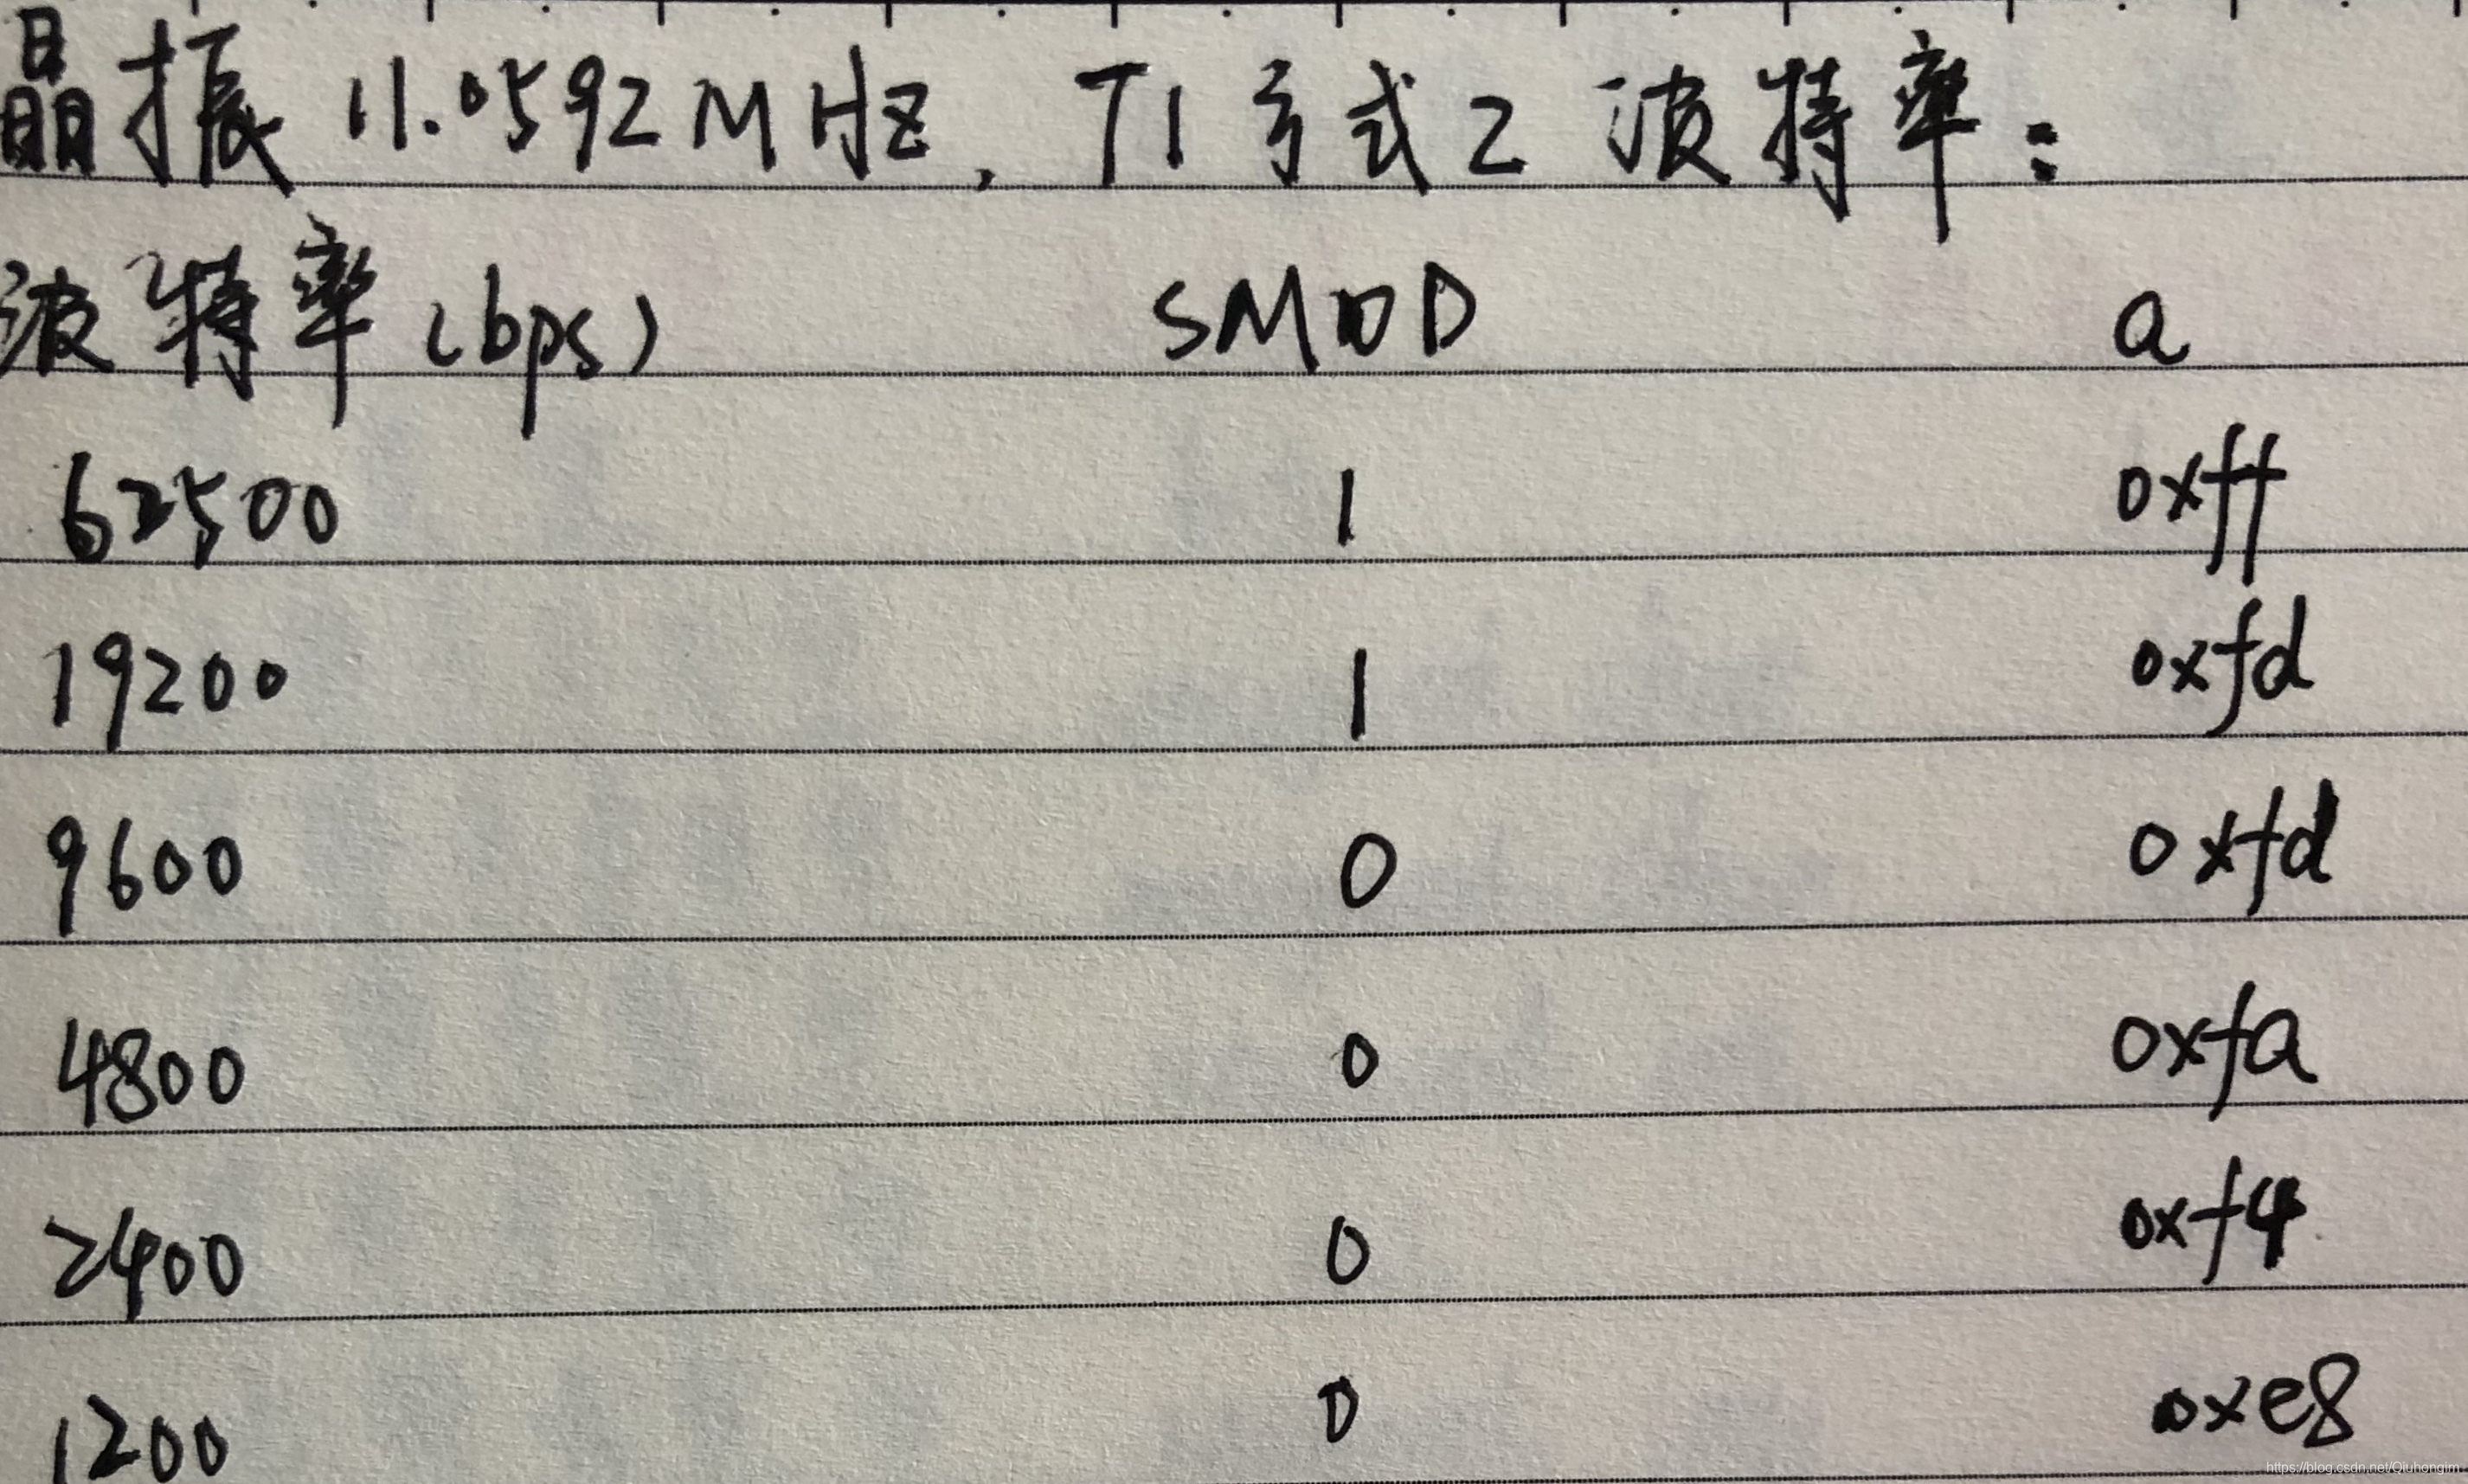 晶振 11.0592MHz, T1方式2波特率:
波特率(bps) SMOD a
62500 1 0xff
19200 1 0xfd
9600 0 0xfd
4800 0 0xfa
2400 0 0xf4
1200 0 0xe8
https://blog.csdn.net/Qiuhongim